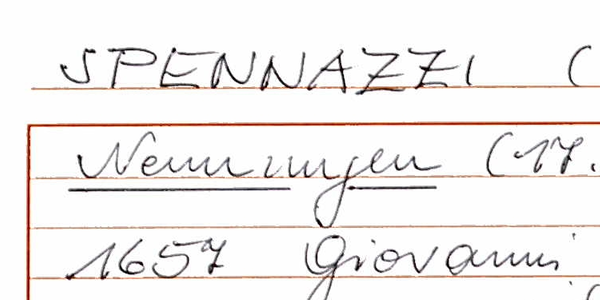 SPENNAZZI (
Nenningen (17.
1657 Giovanni